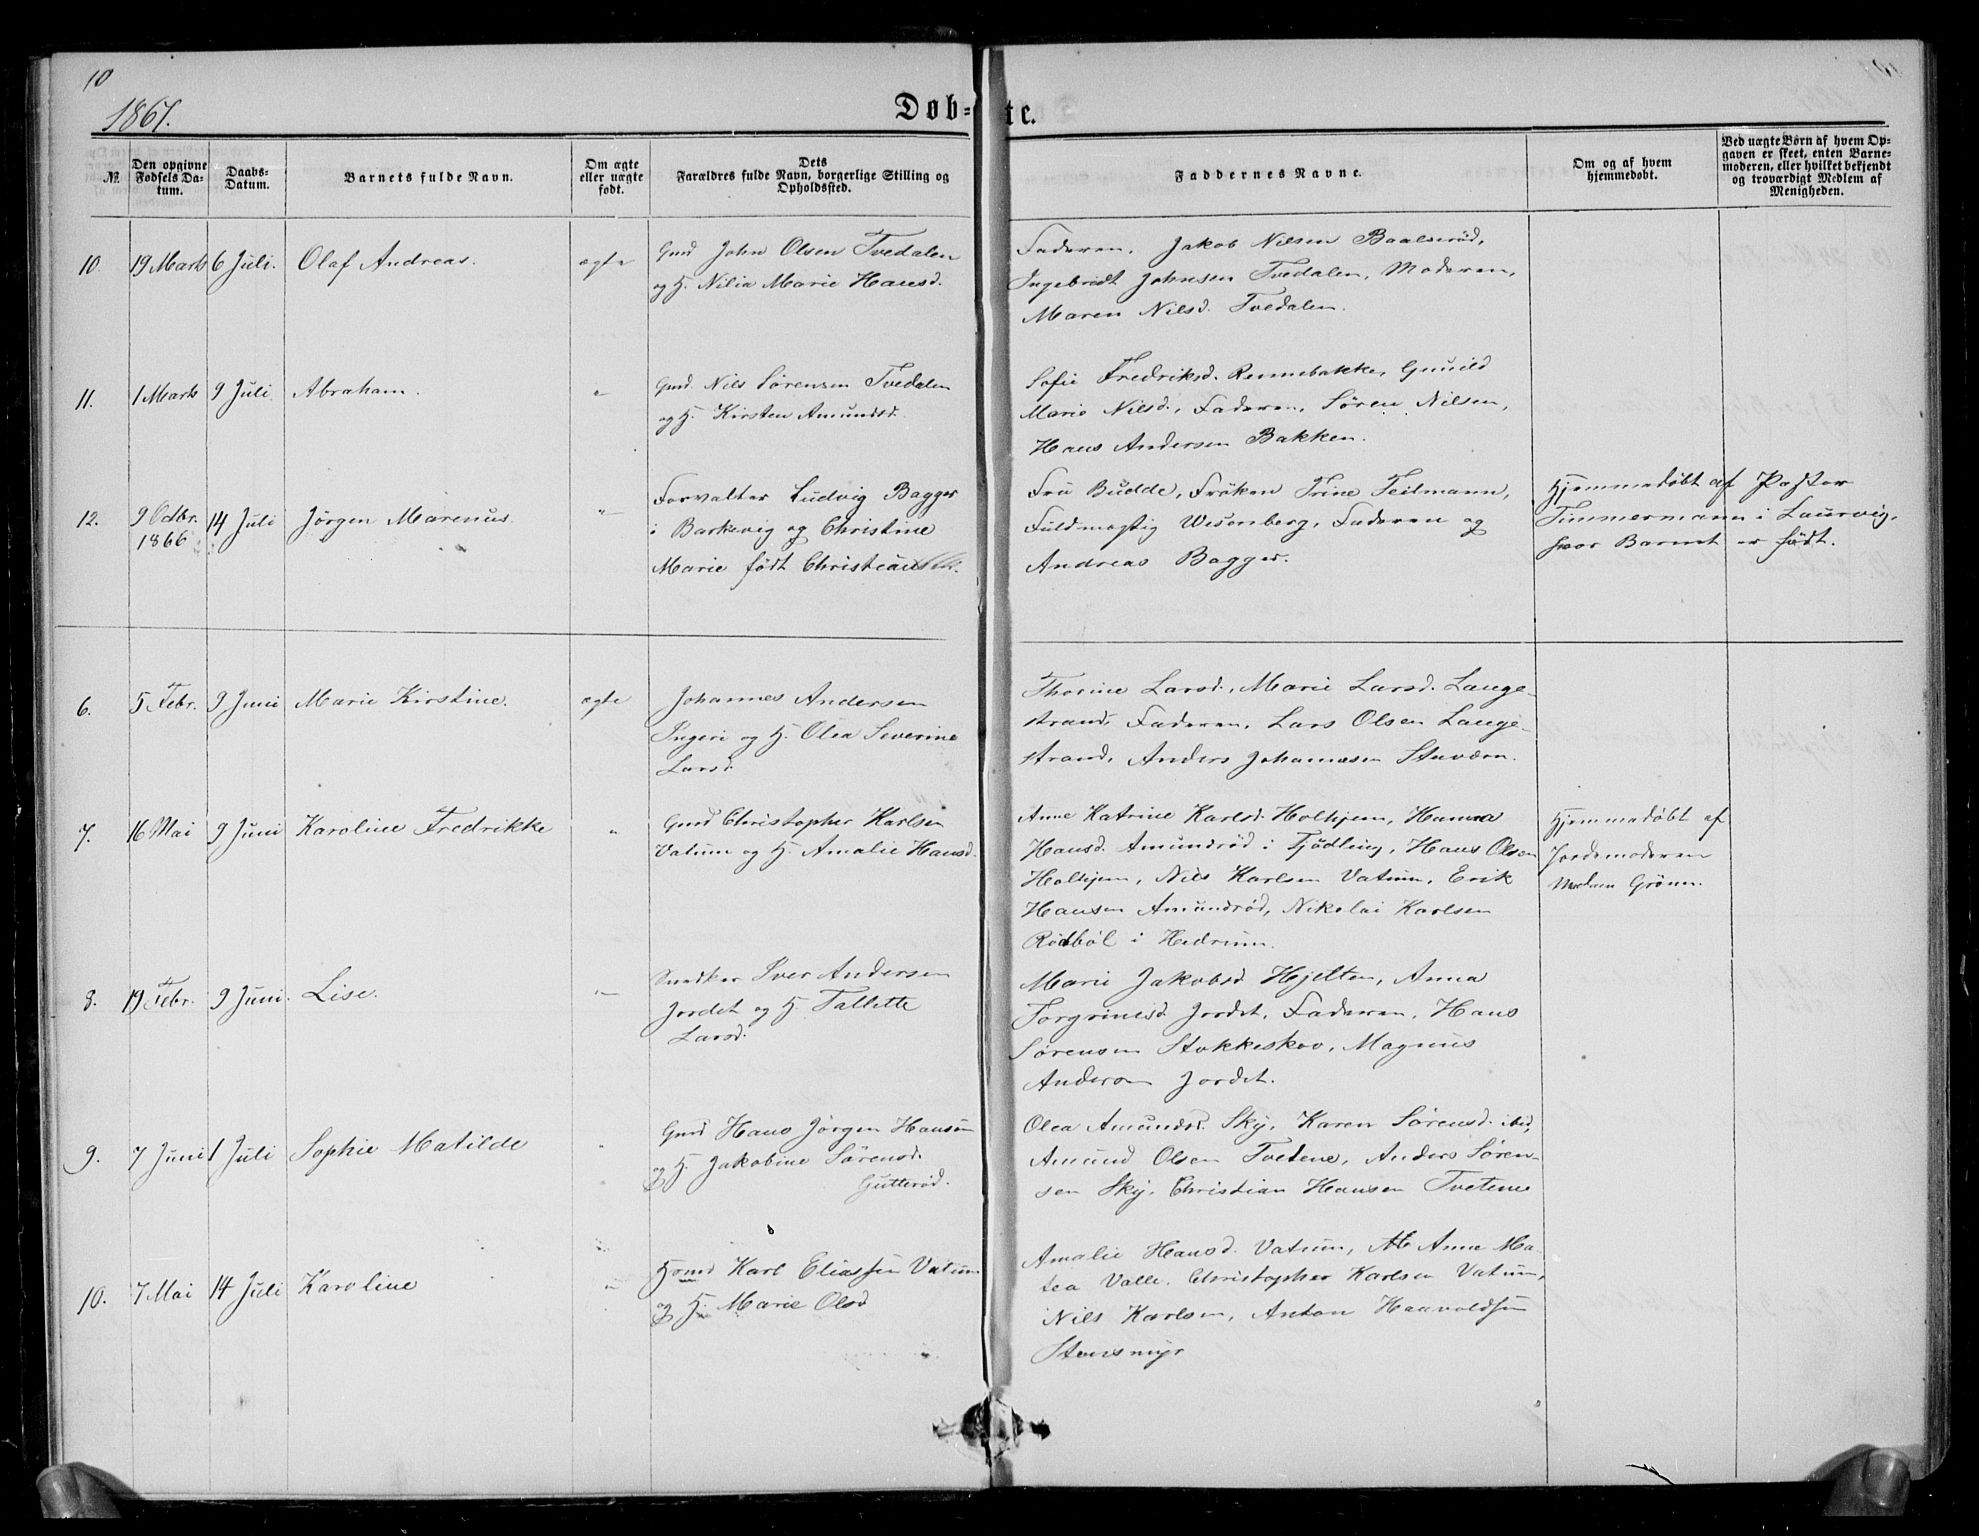 10
1867.
Døb-te.
№
Den opgivne Fødsels Da-tum.
Daabs-Datum.
Barnets fulde Navn.
Om ægte eller uægte født.
Dets Forældres fulde Navn, borgerlige Stilling og Opholdssted.
Faddernes Navne.
Om og af hvem hjemmedøbt.
Ved uægte Børn af hvem Op-gaven er skeet, enten Barne-moderen, eller hvilket bekjendt og troværdigt Medlem af Menigheden.
10. 19 Marts 6 Juli. Olaf Andreas. ægte
Gmd John Olsen Tvedalen
og H. Nilia Marie Hansd.
Faderen, Jakob Nilsen Baalsrød,
Ingebredt Johnsen Tvedalen, Moderen,
Maren Nilsd. Tvedalen.
11. 1 Marts 9 Juli Abraham. "
Gmd. Nils Sørensen Tvedalen
og H. Kirsten Amundsd.
Sofie Fredriksd. Rennebakke, Gunild
Marie Nilsd., Faderen, Søren Nilsen,
Hans Andersen Bakken.
12. 9 Octbr. 1866 14 Juli Jørgen Marenus. "
Forvalter Ludvig Bagger
i Barkevig og Christine
Marie født
Fru Budde, Frøken Trine Teilmann,
Fuldmægtig Wesenberg, Faderen og
Andreas Bagger.
Hjemmedøbt af Pastor
Timmermann i Laurvig,
hvor Barnet er født.
6. 5 Febr. 9 Juni Marie Kirstine. ægte
Johannes Andersen
Ingeri og H. Olea Severine
Larsd.
Thorine Larsd., Marie Larsd. Lange-
strand, Faderen, Lars Olsen Lange-
strand, Anders Johannesen Staværn.
7. 16 Mai 9 Juni Karoline Fredrikke "
Gmd Christopher Karlsen
Vatum og H. Amalie Hansd.
Anne Katrine Karlsd. Holhjem, Hanna
Hansd. Amundrød i Tjødling, Hans Olsen
Holhjem, Nils Karlsen Vatum, Erik
Hansen Amundrød, Nikolai Karlsen
Rødbøl i Hedrum.
Hjemmedøbt af
Jordemoderen
Madam Grønn.
8. 19 Febr. 9 Juni. Lise. "
Snedker Iver Andersen
Jordet og H. Tallette
Larsd.
Marie Jakobsd Hjelten, Anna
Torgrimsd Jordet, Faderen, Hans
Sørensen Stokkeskov, Magnus
Andersen Jordet.
9. 7 Juni 1 Juli Sophie Matilde "
Gmd Hans Jørgen Hansen
og H. Jakobine Sørensd.
Gutterød.
Olea Amundsd. Sky, Karen Sørensd. ibid,
Amund Olsen Tvetene, Anders Søren-
sen Sky, Christian Hansen Tvetene
10. 7 Mai 14 Juli Karoline "
Hmd Karl Eliassen Vatum
og H. Marie Olsd
Amalie Hansd. Vatum, Anne Ma-
tea Valle, Christopher Karlsen Vatum,
Nils Karlsen, Anton Haavoldsen
Stensmyr